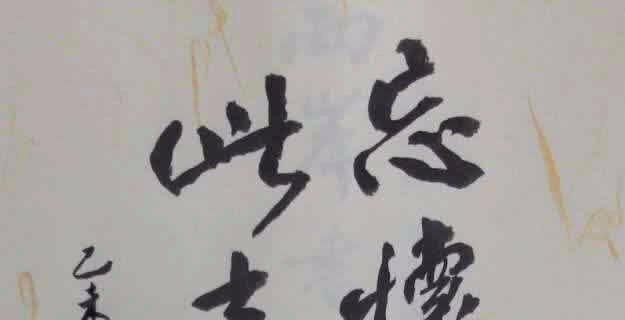 忘懷
此
乙未